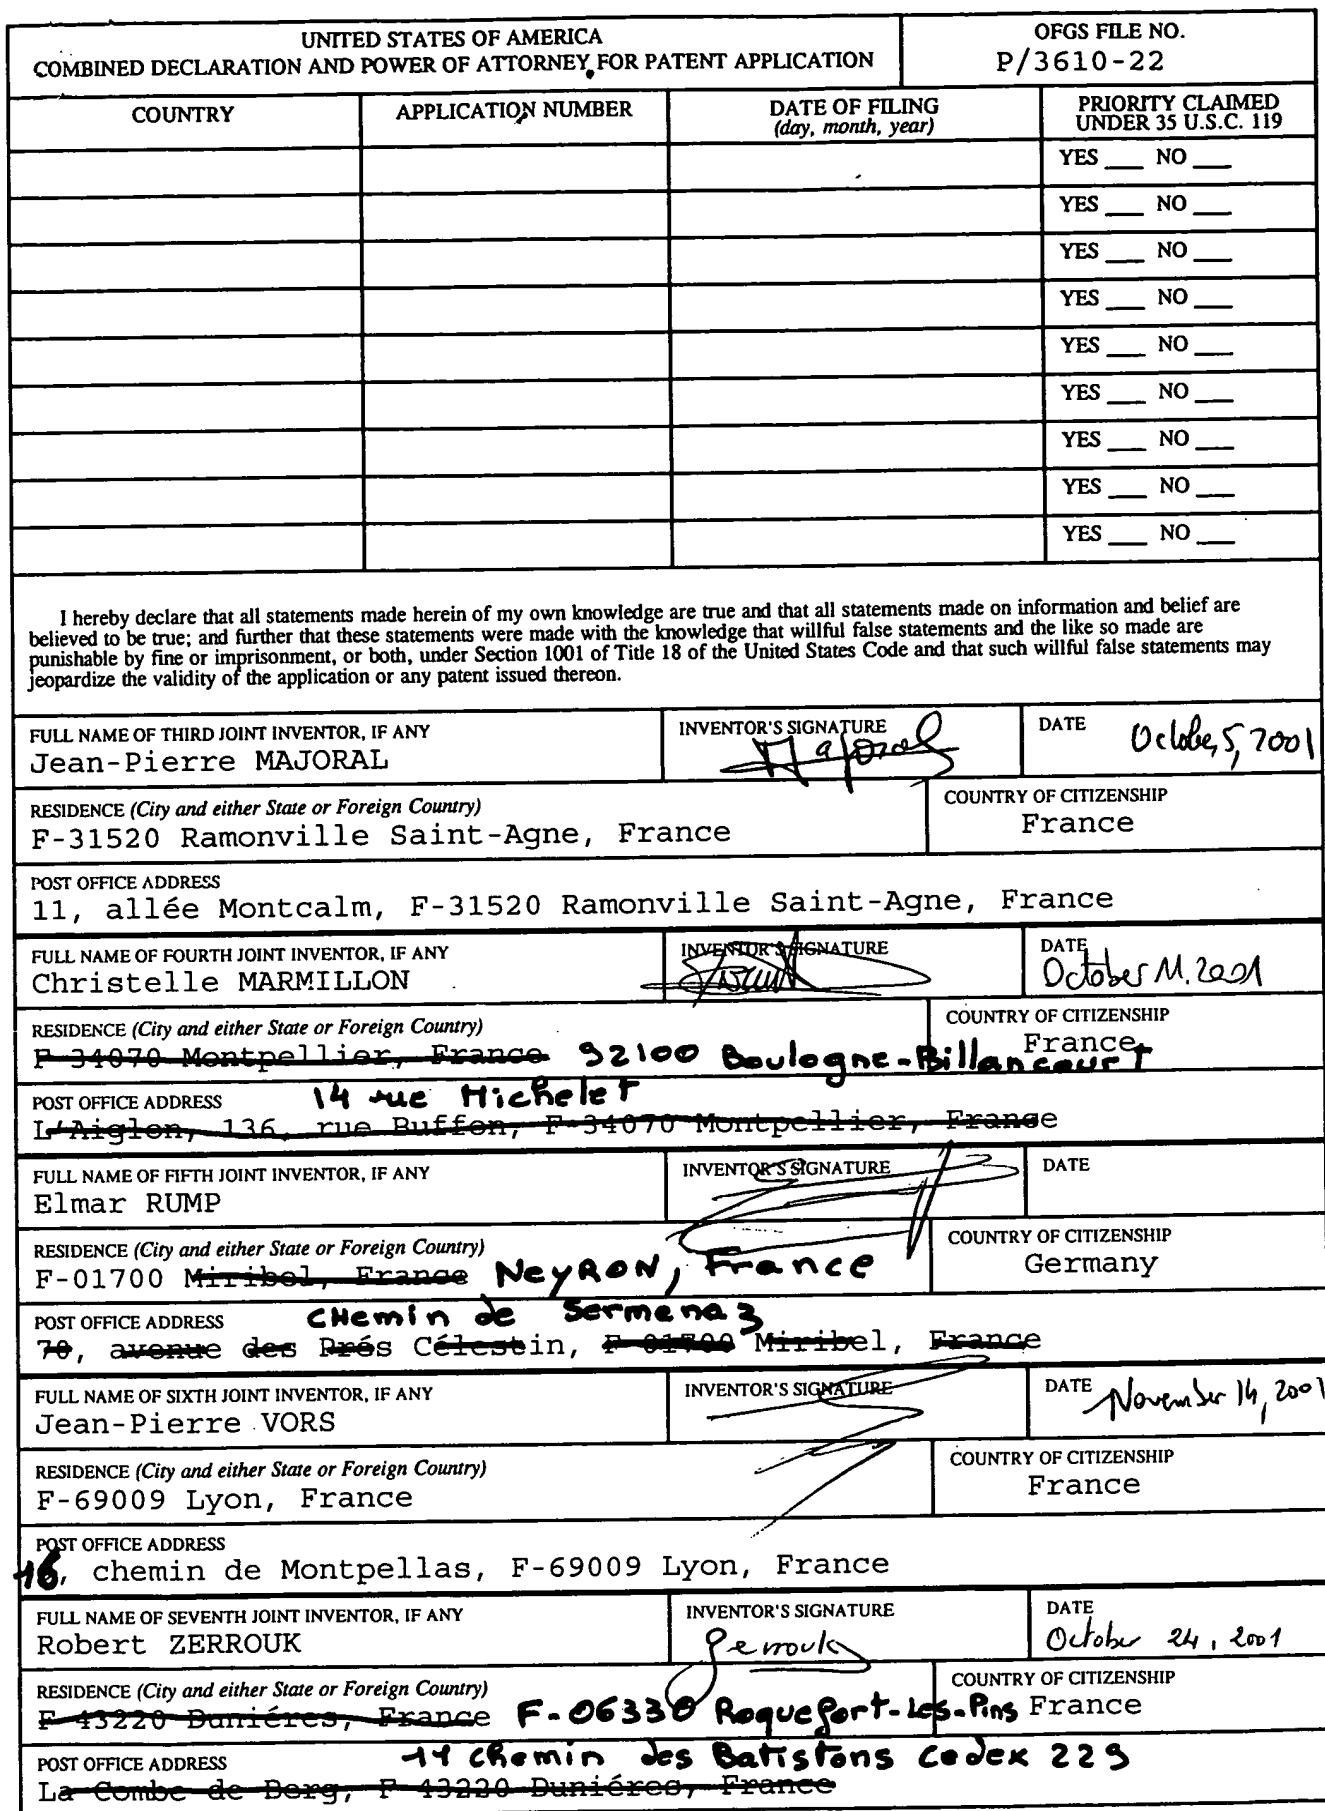 UNITED STATES OF AMERICA
COMBINED DECLARATION AND POWER OF ATTORNEY FOR PATENT APPLICATION
OFGS FILE NO.
P/3610-22
COUNTRY APPLICATION NUMBER DATE OF FILING (day, month, year) PRIORITY CLAIMED UNDER 35 U.S.C. 119
YES ___ NO ___
YES ___ NO ___
YES ___ NO ___
YES ___ NO ___
YES ___ NO ___
YES ___ NO ___
YES ___ NO ___
YES ___ NO ___
YES ___ NO ___
I hereby declare that all statements made herein of my own knowledge are true and that all statements made on information and belief are
believed to be true; and further that these statements were made with the knowledge that willful false statements and the like so made are
punishable by fine or imprisonment, or both, under Section 1001 of Title 18 of the United States Code and that such willful false statements may
jeopardize the validity of the application or any patent issued thereon.
FULL NAME OF THIRD JOINT INVENTOR, IF ANY
Jean-Pierre MAJORAL
INVENTOR'S SIGNATURE
Majoral
DATE October 5, 2001
RESIDENCE (City and either State or Foreign Country)
F-31520 Ramonville Saint-Agne, France
COUNTRY OF CITIZENSHIP
France
POST OFFICE ADDRESS
11, allée Montcalm, F-31520 Ramonville Saint-Agne, France
FULL NAME OF FOURTH JOINT INVENTOR, IF ANY
Christelle MARMILLON
INVENTOR'S SIGNATURE
DATE
October 11. 2001
RESIDENCE (City and either State or Foreign Country)
F-34070 Montpellier, France 92100 Boulogne-Billancourt
COUNTRY OF CITIZENSHIP
France
POST OFFICE ADDRESS 14 rue Michelet
L'Aiglon, 136, rue Buffon, F-34070 Montpellier, France
FULL NAME OF FIFTH JOINT INVENTOR, IF ANY
Elmar RUMP
INVENTOR'S SIGNATURE
DATE
RESIDENCE (City and either State or Foreign Country)
F-01700 Miribel, France NEYRON, France
COUNTRY OF CITIZENSHIP
Germany
POST OFFICE ADDRESS CHemin de Sermenaz
70, avenue des Prés Célestin, F-01700 Miribel, France
FULL NAME OF SIXTH JOINT INVENTOR, IF ANY
Jean-Pierre VORS
INVENTOR'S SIGNATURE
DATE November 14, 2001
RESIDENCE (City and either State or Foreign Country)
F-69009 Lyon, France
COUNTRY OF CITIZENSHIP
France
POST OFFICE ADDRESS
16, chemin de Montpellas, F-69009 Lyon, France
FULL NAME OF SEVENTH JOINT INVENTOR, IF ANY
Robert ZERROUK
INVENTOR'S SIGNATURE
Zerrouk
DATE
October 24, 2001
RESIDENCE (City and either State or Foreign Country)
F-43220 Duniéres, France F-06330 Roquefort-Les-Pins
COUNTRY OF CITIZENSHIP
France
POST OFFICE ADDRESS 11 chemin des Batistons Cedex 229
La Combe de Berg, F-43220 Duniéres, France